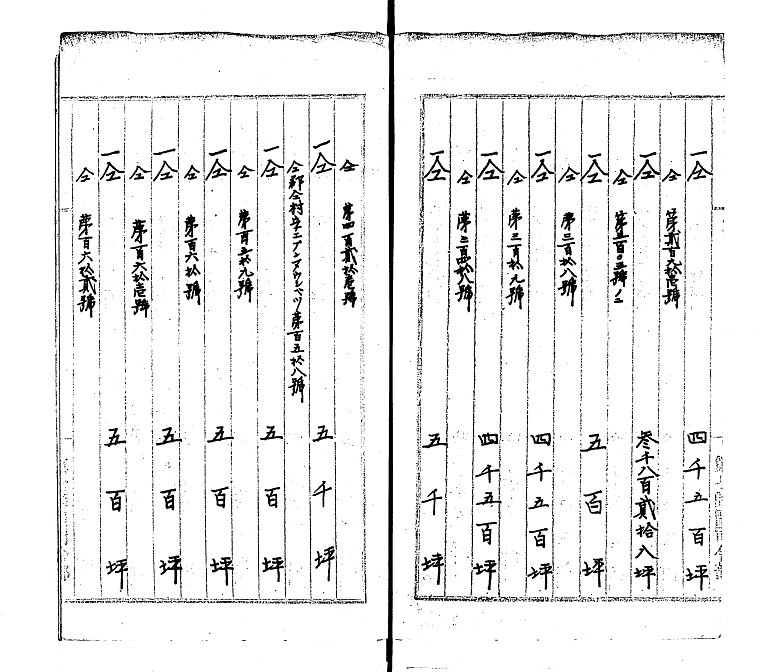 一仝 四千五百坪
仝 第貳百六拾壱號
一仝 参千八百貳拾八坪
仝 第五百〇三號ノ二
一仝 五百坪
仝 第三百拾八號
一仝 四千五百坪
仝 第三百拾九號
一仝 四千五百坪
仝 第三百四拾八號
一仝 五千坪
仝 第四百貳拾壱號
一仝 五千坪
仝郡仝村字ニアンアウシベツ第百五拾八號
一仝 五百坪
仝 第百五拾九號
一仝 五百坪
仝 第百六拾號
一仝 五百坪
仝 第百六拾壱號
一仝 五百坪
仝 第百六拾貳號